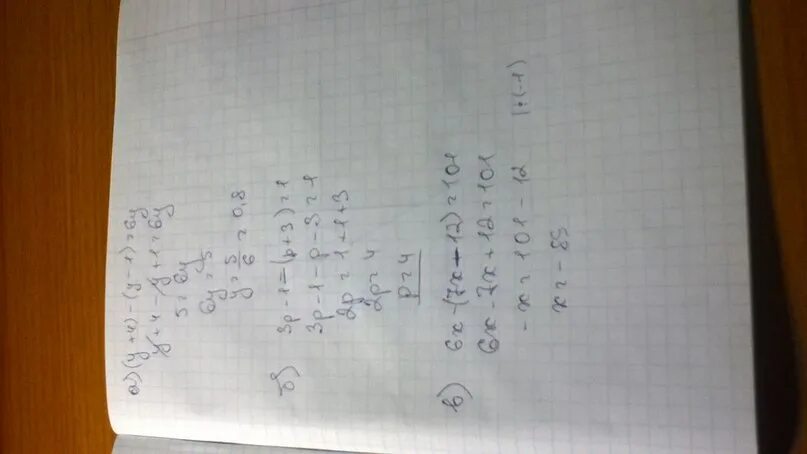 а) (y+4)-(y-1)=6y
y+4-y+1=6y
5=6y
6y=5
y=5/6=0,8
б) 3p-1-(p+3)=1
3p-1-p-3=1
2p=1+1+3
2p=4
p=4
в) 6x-(7x-12)=101
6x-7x+12=101
-x=101-12 |:(-1)
x=-89